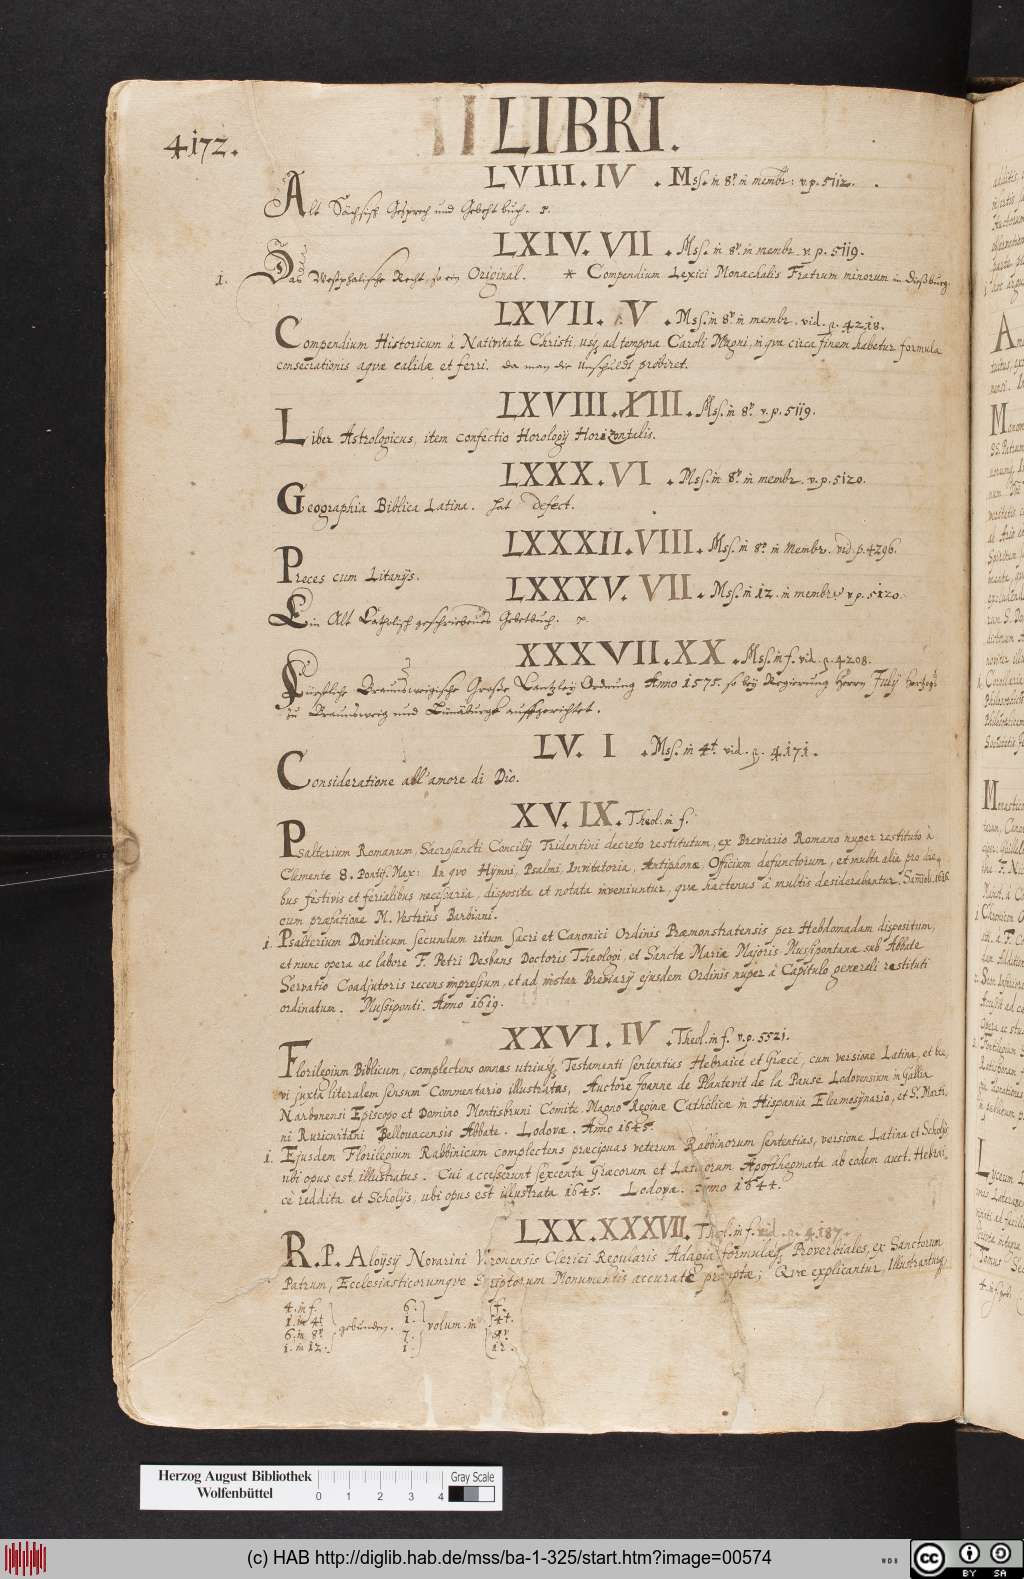 4172.
LIBRI.
LVIII. IV. Mss. in 8º in membr: v. p. 5112.
Alt Sächsisch Gesprech und Gebeht buch.
LXIV. VII. Mss. in 8º. in membr. v. p. 5119.
1. Das Westphalische Recht, so ein Original. * Compendium Lexici Monachalis Fratrum minorum in
LXVII. V. Mss. in 8º in membr. vid. p. 4218.
Compendium Historicum à Nativitate Christi, usq ad tempora Caroli Magni, in qva circa finem habetur formula
consecrationis aqvæ calidæ et ferri. da man die Unschuldt probiret.
LXVIII. XIII. Mss. in 8º. v. p. 5119.
Liber Astrologicus, item confectio Horologij Horizontalis.
LXXX. VI. Mss. in 8º in membr. v. p. 5120.
Geographia Biblica Latina. hat defect.
LXXXII. VIII. Mss. in 8º. in Membr. vid. p. 4296.
Preces cum Litanijs.
LXXXV. VII. Mss. in 12. in membr. v. p. 5120.
Ein Alt Catholisch geschriebenes Gebetbuch.
XXXVII. XX. Mss. in f. vid. p. 4208.
Fürstliche Braunsweigische Große Cantzley Ordnung Anno 1575. so bey Regierung Herrn Julij Hertzogs
zu Braunsweig und Lünäburgk auffgerichtet.
LV. I. Mss. in 4t. vid. p. 4171.
Consideratione all'amore di Dio.
XV. IX. Theol. in f.
Psalterium Romanum, Sacrosancti Concilij Tridentini decreto restitutum, ex Breviario Romano nuper restituto à
Clemente 8. Pontif. Max: In qvo Hymni, Psalmi, Invitatoria, Antiphonæ, Officium defunctorum, et multa alia pro die-
bus festivis et ferialibus necessaria, disposita et notata inveniuntur, qvæ hactenus à multis desiderabantur.
cum præfatione M. Vestrius Barbiani.
1. Psalterium Davidicum secundum ritum Sacri et Canonici Ordinis Præmonstratensis per Hebdomadam dispositum,
et nunc opera ac labore F. Petri Desbans Doctoris Theologi, et Sanctæ Mariæ Majoris Mussipontanæ sub Abbate
Servatio Coadjutoris recens impressum, et ad instar Breviarij ejusdem Ordinis nuper à Capitulo generali restituti
ordinatum. Mussiponti. Anno 1619.
XXVI. IV. Theol. in f. v. p. 5521.
Florilegium Biblicum, complectens omnes utriusq Testamenti sententias Hebraice et Græcè, cum versione Latina, et bre,
vi juxta literalem sensum Commentario illustratas, Auctore Joanne de Plantevit de la Pause Lodovensium in Gallia
Narbonensi Episcopo et Domino Montisbruni Comite, Magno Reginæ Catholicæ in Hispania Eleemosynario, et S. Marti,
ni Ruricuritani Bellovacensis Abbate. Lodovæ. Anno 1645.
1. Ejusdem Florilegium Rabbinicum complectens præcipuas veterum Rabbinorum sententias, versione Latina et Scholijs
ubi opus est illustratus. Cui accesserunt sexcenta Græcorum et Latinorum Apophthegmata ab eodem auct. Hebrai,
cè reddita et Scholijs, ubi opus est illustrata 1645. Lodovæ. Anno 1644.
LXX. XXXVII. Theol. in f. vid. p. 4187.
R. P. Aloÿsÿ Novarini Veronensis Clerici Regularis Adagia formulæq Proverbiales, ex Sanctorum
Patrum, Ecclesiasticorumqve Scriptorum Monumentis accuratè promptæ; Qvæ explicantur, Illustranturq
4. in f. 6. f.
1. in 4t. gebunden. 1. volum. in 4t.
6. in 8º 7. 8º.
1. in 12. 1. 12.
Herzog August Bibliothek
Wolfenbüttel
0 1 2 3 4
Gray Scale
(c) HAB http://diglib.hab.de/mss/ba-1-325/start.htm?image=00574
WDB
cc BY SA